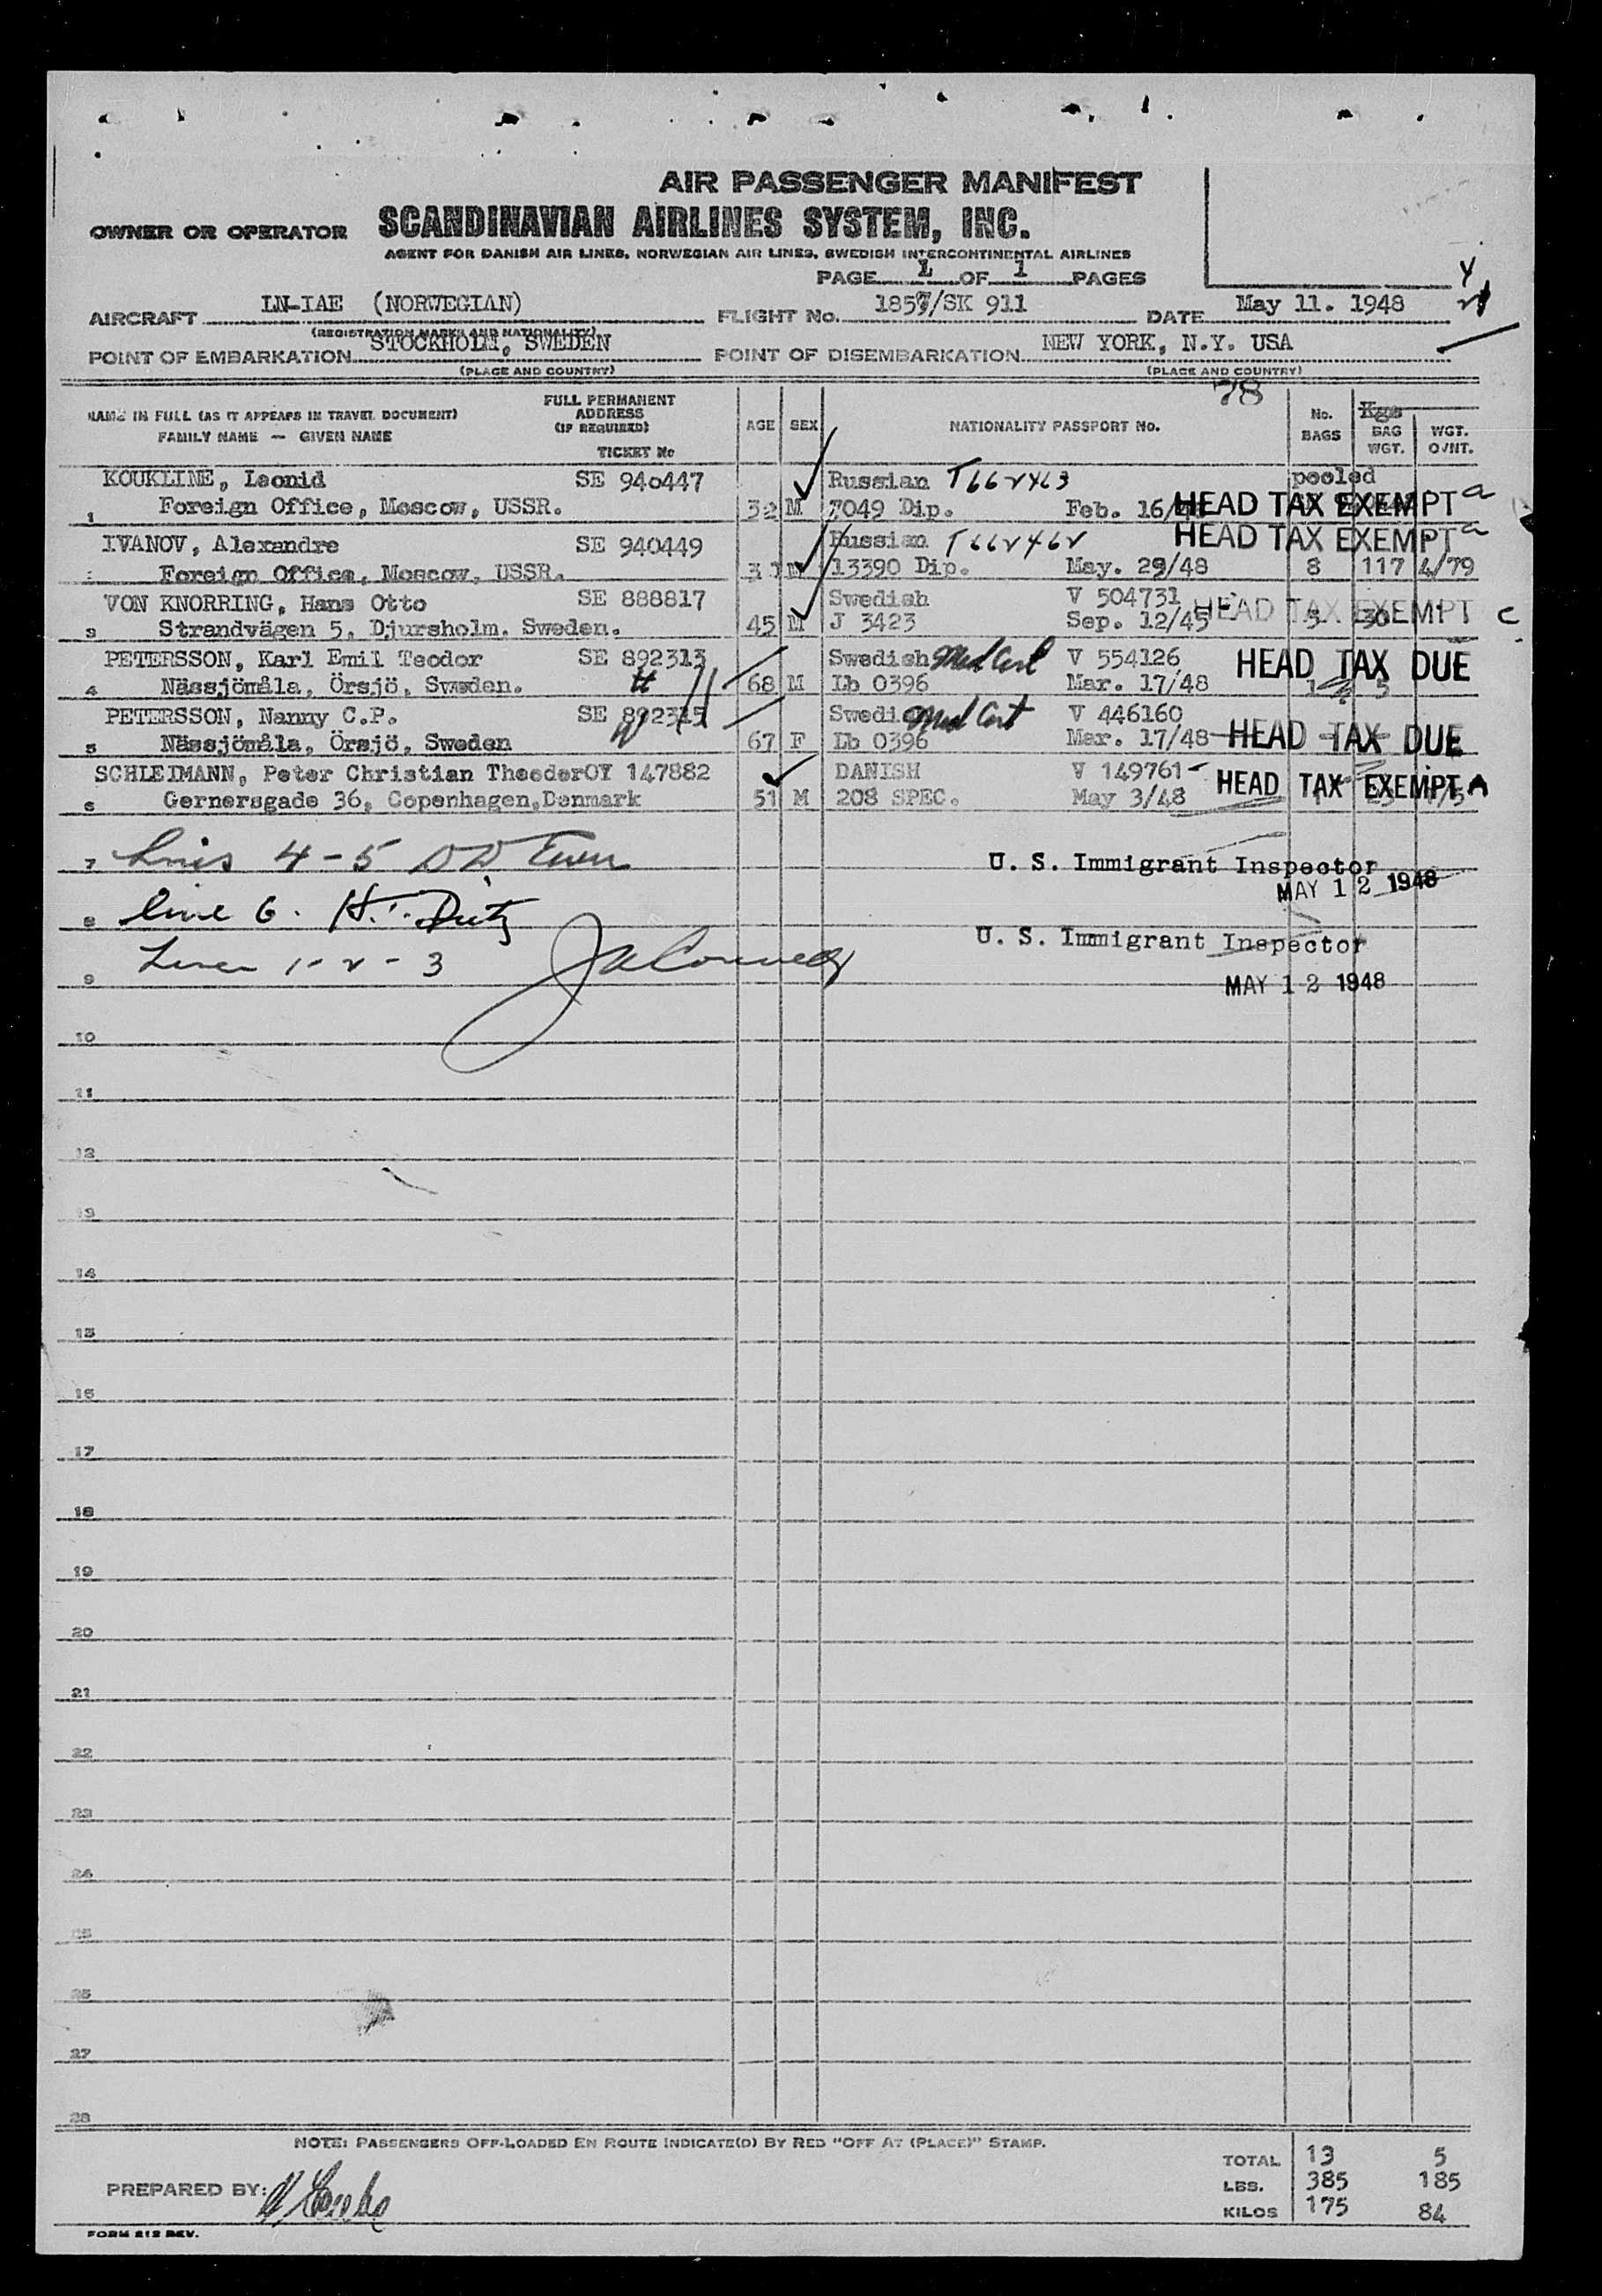 AIR PASSENGER MANIFEST
OWNER OR OPERATOR SCANDINAVIAN AIRLINES SYSTEM, INC.
AGENT FOR DANISH AIR LINES, NORWEGIAN AIR LINES, SWEDISH INTERCONTINENTAL AIRLINES
PAGE 1 OF 1 PAGES
AIRCRAFT LN-IAE (NORWEGIAN) FLIGHT No. 1857/SK 911 DATE May 11. 1948
(REGISTRATION MARKS AND NATIONALITY)
POINT OF EMBARKATION STOCKHOLM, SWEDEN POINT OF DISEMBARKATION NEW YORK, N.Y. USA
(PLACE AND COUNTRY) (PLACE AND COUNTRY)
78
NAME IN FULL (AS IT APPEARS IN TRAVEL DOCUMENT) FULL PERMANENT ADDRESS (IF REQUIRED) AGE SEX NATIONALITY PASSPORT No. No. BAGS Kgs BAG WGT. WGT. O/HT.
FAMILY NAME — GIVEN NAME TICKET No
KOUKLINE, Leonid SE 940447 Russian T662463 pooled
1 Foreign Office, Moscow, USSR. 32 M 7049 Dip. Feb. 16/ HEAD TAX EXEMPT a
IVANOV, Alexandre SE 940449 Russian T662462 HEAD TAX EXEMPT a
Foreign Office, Moscow, USSR. M 13390 Dip. May. 29/48 8 117 4/79
VON KNORRING, Hans Otto SE 888817 Swedish V 504731 HEAD TAX EXEMPT C
3 Strandvägen 5, Djursholm. Sweden. 45 M J 3423 Sep. 12/45 3 30
PETERSSON, Karl Emil Teodor SE 892313 Swedish Med Cert V 554126 HEAD TAX DUE
4 Nässjömåla, Örsjö, Sweden. 68 M Lb 0396 Mar. 17/48 1 5
PETERSSON, Nanny C.P. SE 892315 Swedish Med Cert V 446160
5 Nässjömåla, Örsjö, Sweden 67 F Lb 0396 Mar. 17/48 HEAD TAX DUE
SCHLEIMANN, Peter Christian Theeder OY 147882 DANISH V 149761 HEAD TAX EXEMPT A
6 Gernersgade 36, Copenhagen, Denmark 51 M 208 SPEC. May 3/48
7 Lines 4-5 U. S. Immigrant Inspector
MAY 12 1948
8 Line 6. U. S. Immigrant Inspector
9 Lines 1-2-3 MAY 12 1948
10
11
12
13
14
15
16
17
18
19
20
21
22
23
24
25
26
27
28
NOTE: PASSENGERS OFF-LOADED EN ROUTE INDICATE(D) BY RED "OFF AT (PLACE)" STAMP.
TOTAL 13 5
LBS. 385 185
KILOS 175 84
PREPARED BY:
FORM 212 REV.